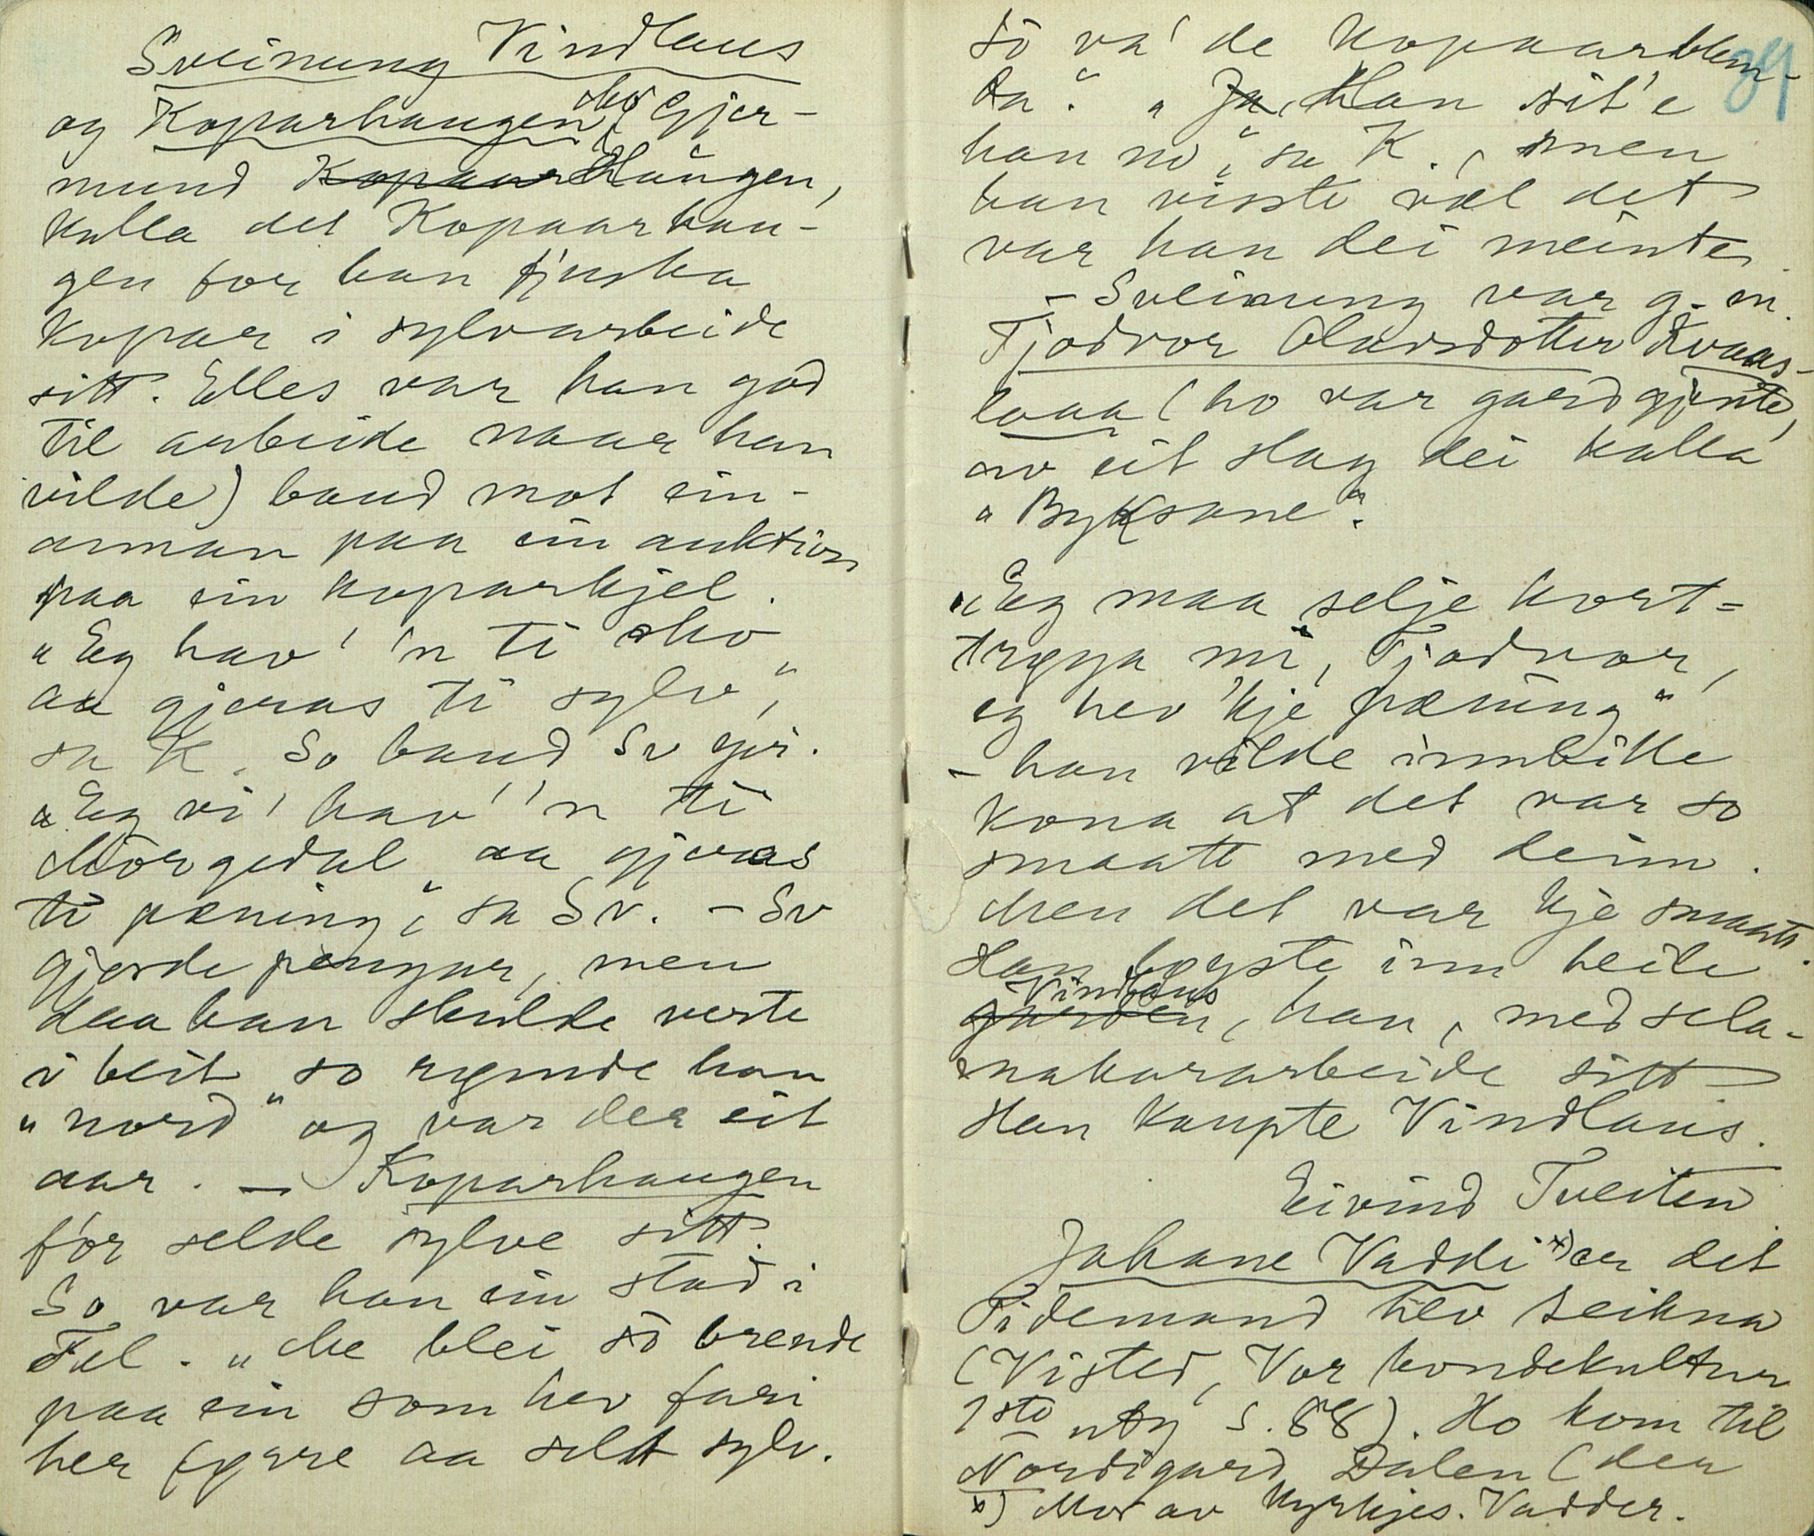 Sveinung Vindlaus
og Koparhaugen (Gjer-
mund Kopaar Haugen,
kalla det Kopaarhau-
gen for han fuska
kopar i sylvarbeide
sitt. Elles var han god
til arbeide naar han
vilde) baud mot ein-
annan paa ein auktion
paa ein koparkjel.
"Eg hav' 'n ti Mo
aa gjeras ti sylv",
sa K. So baud Sv yvi.
"Eg vi' hav' 'n ti
Morgedal aa gjeras
ti pæning", sa Sv. - Sv
gjorde pengar, men
daa han skulde verte
i beit so rymde han
"nord" og var der eit
aar. - Koparhaugen
for selde sylve sitt.
So var han ein stad i
Tel. "Me blei so brende
paa ein som hev fari
her fyrre aa selt sylv.
39
So va' de Kopaarblem-
ba". "Ja, Han sit'e
han no", sa K., men
han visste væl det
var han dei meinte.
- Sveinung var g. m.
Tjodvor Olavsdotter Kvaas-
loaa (ho var gardgjente,
av eit slag dei kalla
"Byksane".
"Eg maa selje kort-
trøya mi, Tjodvor,
eg hev 'kje pæning"
- han vilde innbille
kona at det var so
smaatt med deim.
Men det var kje smaatt.
Han løyste inn heile
Vindlaus
garden, han, med sela-
makararbeide sitt
Han kaupte Vindlaus.
Eivind Tveiten
Johane Vaddi x) er det
Tidemand hev teikna
(Visted, Vor bondekultur
1ste utg s. 88). Ho kom til
Nordigard Dalen (der
x) Mor av kyrkjes. Vadder.